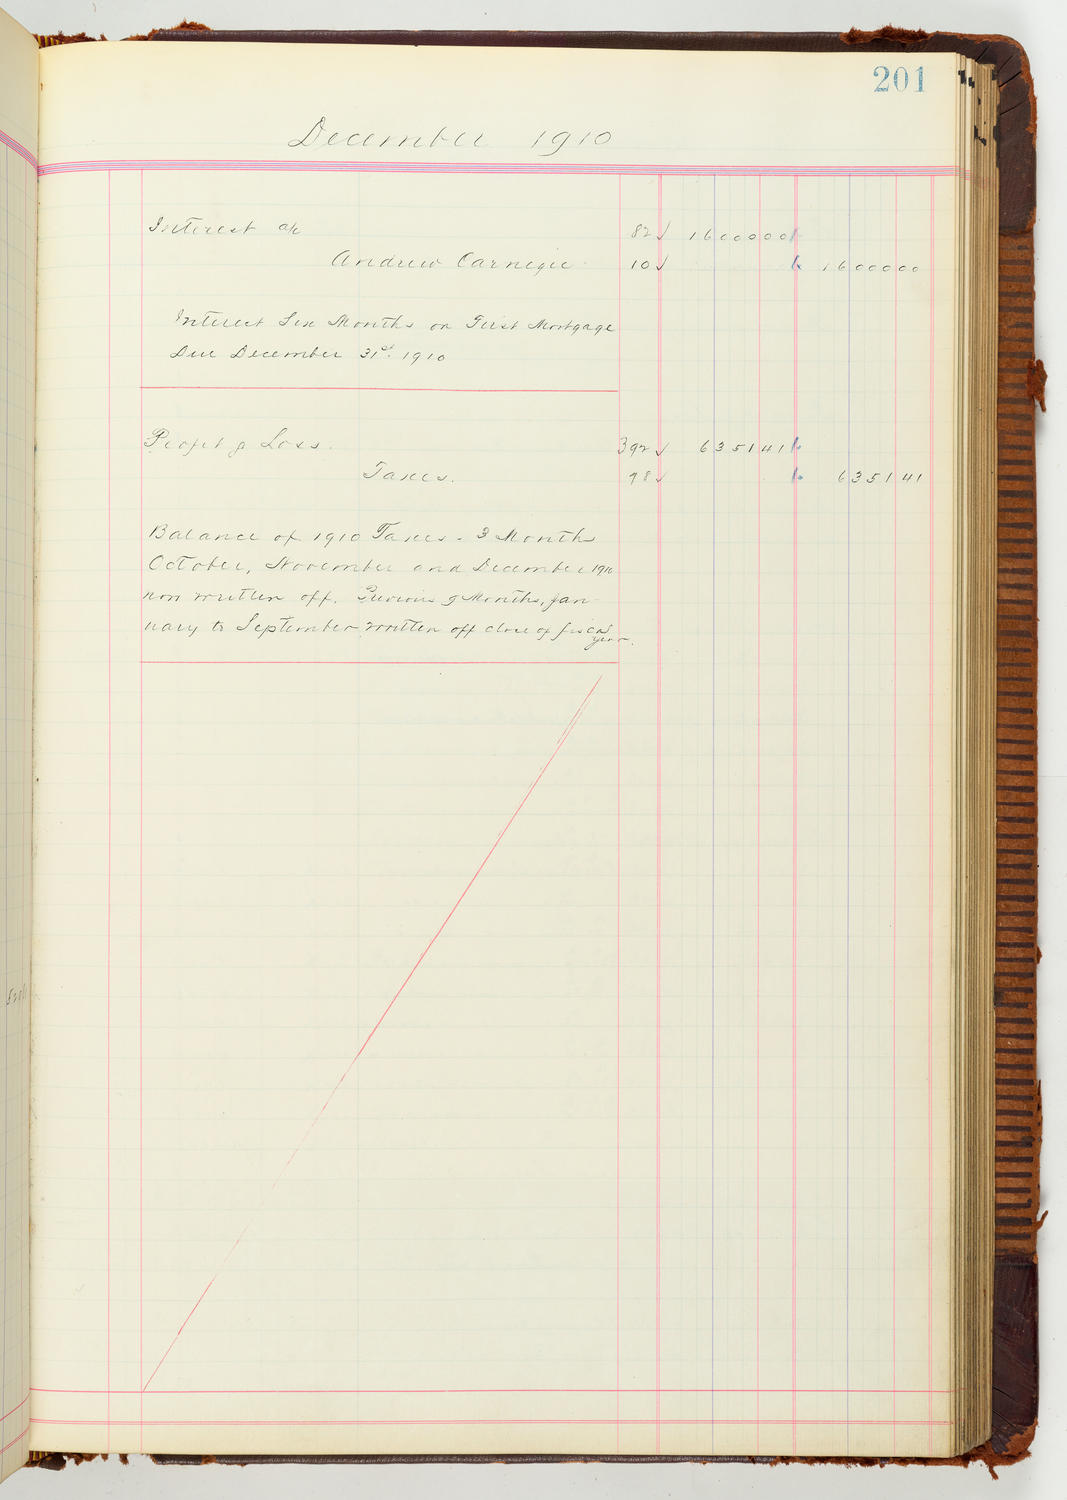 201
December 1910
Interest a/c 82 ✓ 1600000
Andrew Carnegie 10 ✓ 1600000
Interest Six Months on First Mortgage
Due December 31st. 1910
Profit & Loss. 392 ✓ 635141
Taxes. 98 ✓ 635141
Balance of 1910 Taxes - 3 Months
October, November and December 1910
now written off. Previous 9 Months, Jan-
uary to September written off close of fiscal
year.